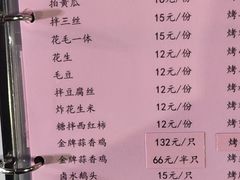 拍黄瓜 16元/份
拌三丝 15元/份 烤
花毛一体 15元/份 烤
花生 12元/份 烤
毛豆 12元/份 烤
拌豆腐丝 12元/份 烤
炸花生米 12元/份 烤
糖拌西红柿 12元/份
金牌蒜香鸡 132元/只 烤
金牌蒜香鸡 66元/半只
卤水鹅头 15元/只 烤